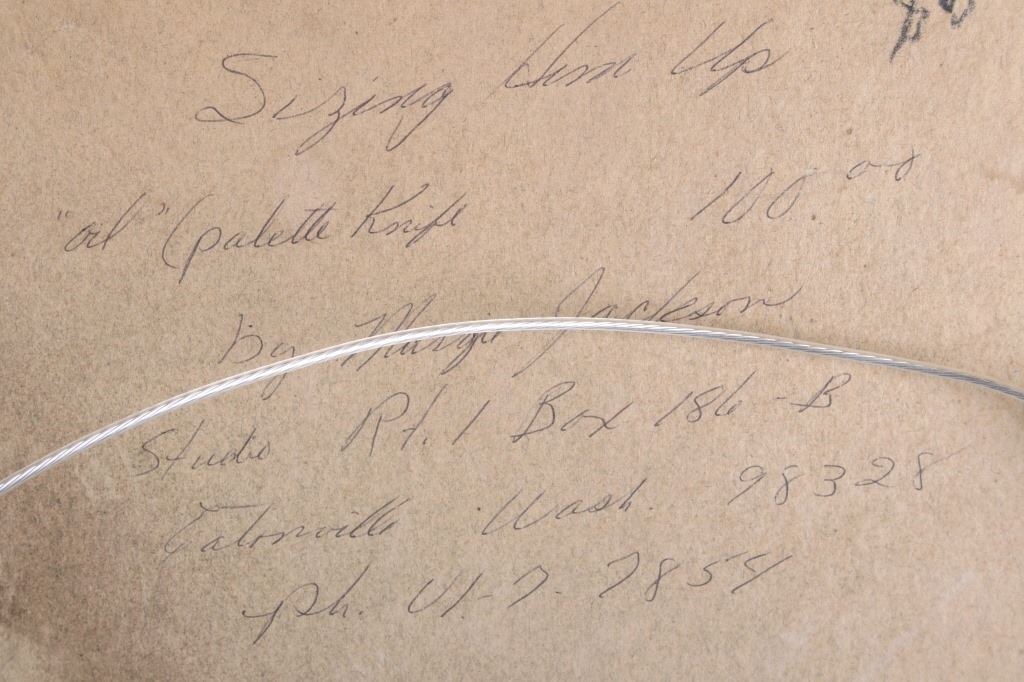 Sizing Him Up
"oil" (palette Knife 100.00
By Margie Jackson
Studio Rt. 1 Box 186-B
Eatonville Wash. 98328
Ph. UL-7. 7854